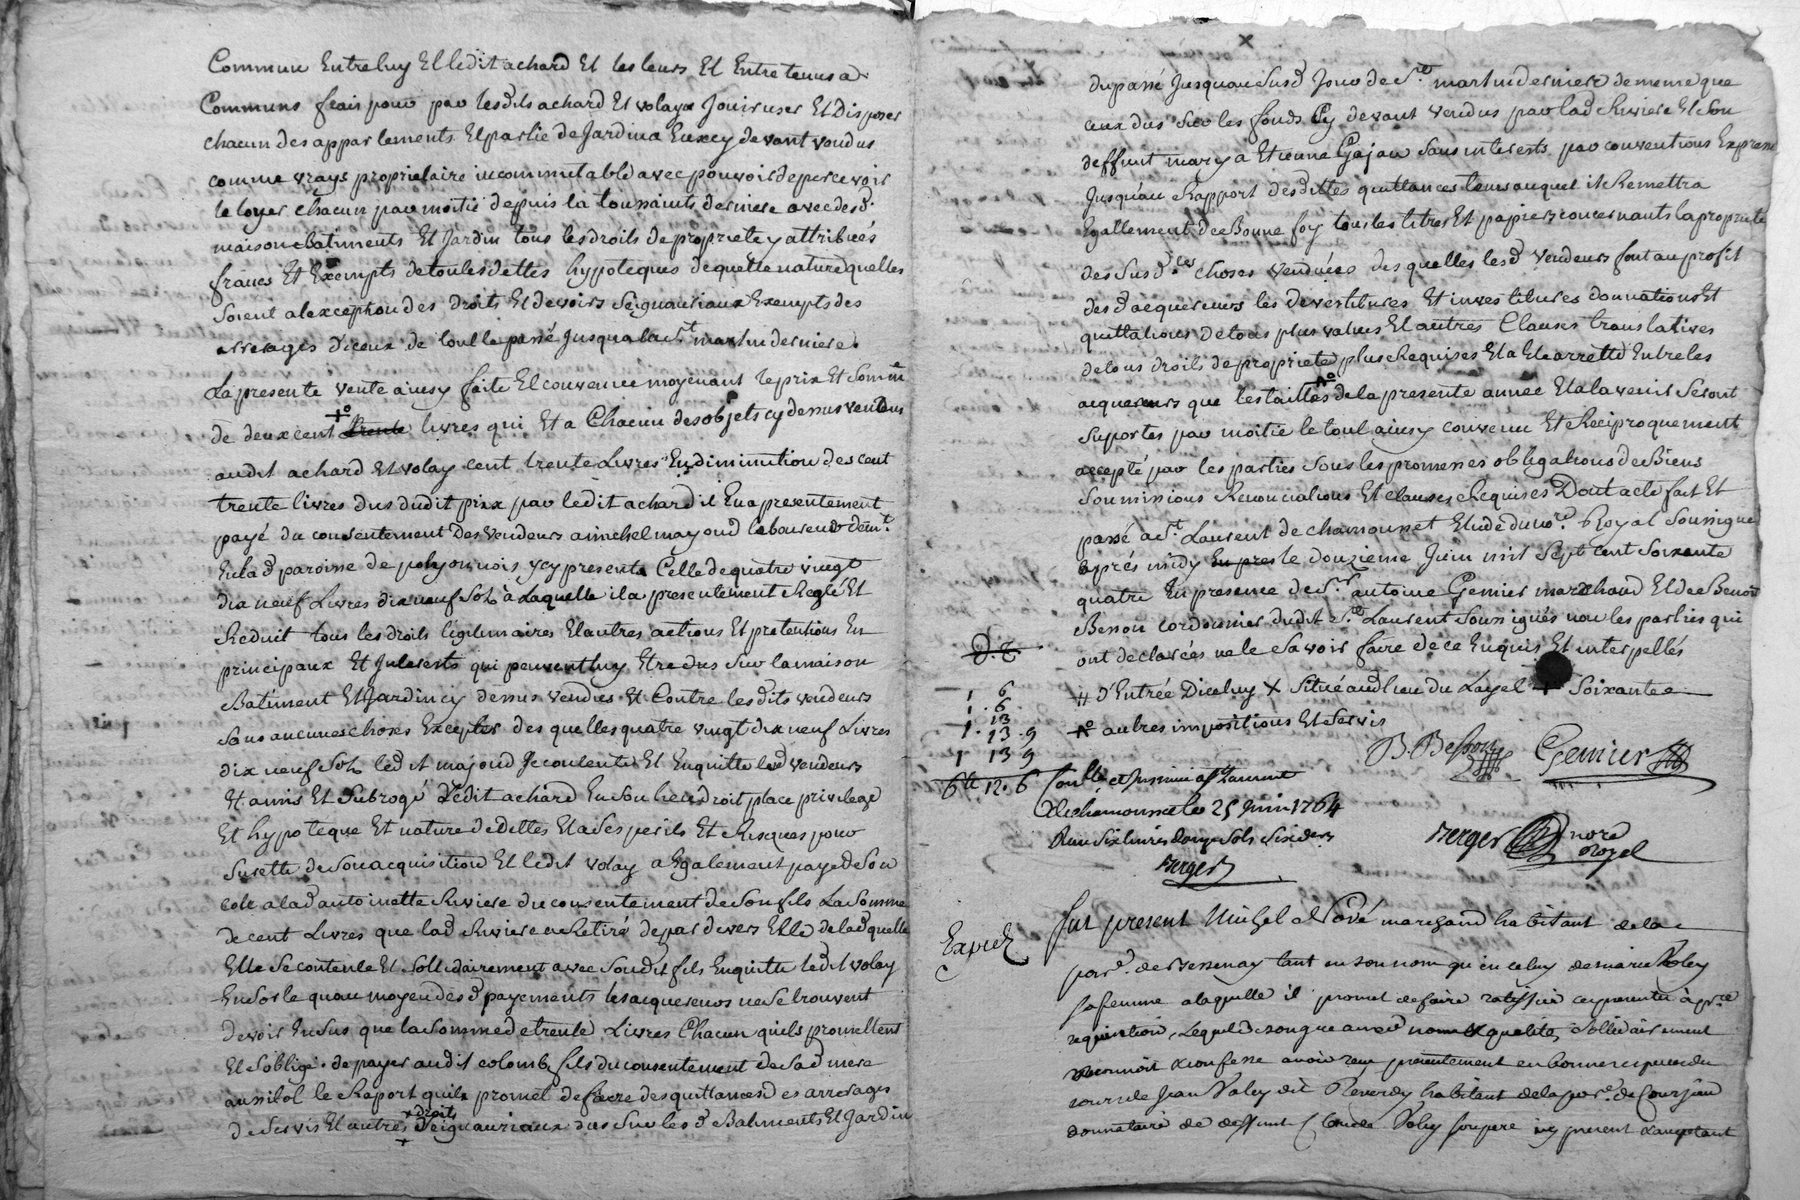 Commun Entreluy Et ledit achard Et les leurs Et Entretenus a
Communs frais pour par lesdits achard Et volay Jouir user Et Disposer
chacun des appartements Et partie de Jardin a Eux cy devant vendus
comme vrays proprietaire incommutable avec pouvoir de percevoir
le loyer chacun par moitié depuis la toussaints derniere avec des d.
maison batiments Et Jardin tous les droits de propriete y attribués
francs Et Exempts de toutes dettes hypoteques de quelle nature quelles
Soient alexception des droits Et devoirs Seignauriaux Exempts des
arrerages diceux de tout le passé Jusqua la St martin derniere
La presente vente ainsy faite Et convenue moyenant le prix Et Somme
de deux cent +° trente livres qui Et a Chacun des objets cy dessus vendus
audit achard Et volay cent trente Livres En diminution des cent
trente livres dus dudit prix par ledit achard il En a presentement
payé du consentement des vendeurs a michel mayoud laboureur demt.
En la d paroisse de polyonnois ycy presente Celle de quatre vingt
dix neuf Livres dix neuf Sols à Laquelle il a presentement Reglé Et
Reduit tous les droits legitimaires Et autres actions Et pretentions En
principaux Et Interests qui peuvent luy Etre dus Sur la maison
Batiment Et Jardin cy dessus vendus Et Contre lesdits vendeurs
Sans aucunes choses Excepter des quelles quatre vingt dix neuf Livres
dix neuf Sols led it mayoud Se contente Et Enquitte lesd vendeurs
Et a mis Et Subrogé Ledit achard En Son lieu droit place privilege
Et hypoteque Et nature de dettes Et a Ses perils Et Risques pour
Surette de Son acquisition Et ledit volay a Egalement payé de Son
coté a la d antoinette Riviere du consentement de Son fils La Somme
de cent Livres que lad Riviere a Retiré de par devers Elle de lad quelle
Elle Se contente Et Sollidairement avec Sondit fils Enquitte ledit volay
En Sorte quau moyen des d payements les acquereurs ne Se trouvent
devoir En Sus que la Somme de trente Livres Chacun quils promettent
Et Soblige de payer audit colomb fils du consentement de Sad mere
aussitot le Raport quils promet de faire des quittances des arrerages
de Servis Et autres + droits Seignauriaux dus Sur les d Batiments Et Jardin
du passé Jusquau Susd Jour de St. martin derniere de meme que
ceux dus Sur les fonds Cy devant vendus par lad Riviere Et Son
deffunt mary a Etienne Gajan Sans interests par conventions Expresse
Jusquau Rapport des dittes quittances lors auquel il Remettra
Egallement de Bonne foy tous les titres Et papiers concernants la propriete
des Susd.tes choses vendues des quelles lesd vendeurs font au profit
des d acquereurs les devestitures Et investitures donnations Et
quittations de tous plus values Et autres Clauses translatives
de tous droits de propriete plus Requises Et a Ete arretté Entre les
acquereurs que les tailles N° de la presente année Et a lavenir Seront
Suportes par moitié le tout ainsy convenu Et Reciproquement
accepté par les parties Sous les promesses obligations de Biens
Soumissions Renonciations Et clauses Requises Dont acte fait Et
passé a St. Laurent de chamousset Etude du nore. Royal Soussigné
aprés midy En pres le douzieme Juin mil Sept cent Soixante
quatre En presence de Sr antoine Genier marchand Et de Benoit
Besson cordonnier dudit St. Laurent Soussignés non les parties qui
ont declarées ne le Savoir faire de ce Enquis Et interpellés
D. t.
// d'Entrée Diceluy X Situé audlieu du Layel + Soixante
N° autres impositions Et Servis
1 . 6
1 . 6
1 . 13
1 . 13 . 9
1 13 9
6tt 12 . 6
B. Besson
Genier
Conllé et Insinué a St Laurent
de chamousset le 25 Juin 1764
Reçu Six livres douze Sols Six deniers
Berger
Berger nore royal
Expiez
Fut present Michel al Pové marchand habitant de la
parse. de Bessenay tant en son nom qu en celuy de marie Voley
sa femme a laquelle il promet de faire ratiffier ces presentes à pre
requisition, Lequel de son gre aux d nom & qualités, Sollidairement
reconnoit & confesse avoir reçu presentement en bonnes especes du
cours de Jean Voley dit Reverdy habitant de la parse. de Courzieu
donnataire de deffunt Claude Voley son pere icy present & acceptant